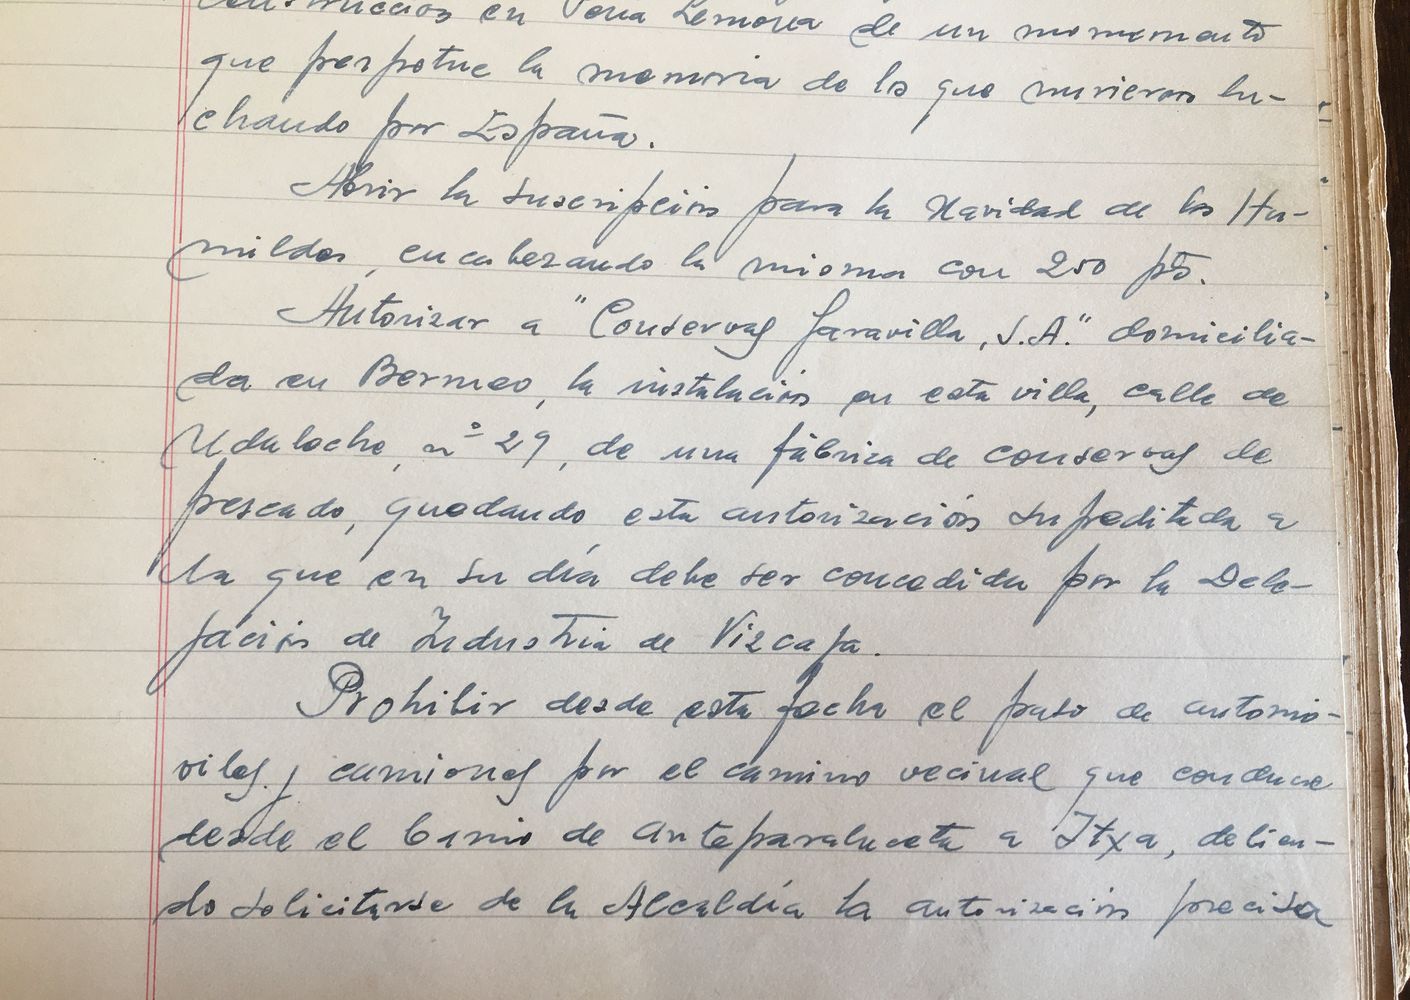 construccion en Peña Lemona de un monumento
que perpetue la memoria de los que murieron lu-
chando por España.
Abrir la suscripción para la Navidad de los Hu-
mildes, encabezando la misma con 250 pts.
Autorizar a "Conservas Garavilla, S.A." domicilia-
da en Bermeo, la instalación en esta villa, calle de
nº 29, de una fábrica de conservas de
pescado, quedando esta autorización supeditada a
la que en su día debe ser concedida por la Dele-
gación de Industria de Vizcaya.
Prohibir desde esta fecha el paso de automó-
viles y camiones por el camino vecinal que conduce
desde el barrio de Anteparaluceta a Itxa, debien-
do solicitarse de la Alcaldía la autorización precisa